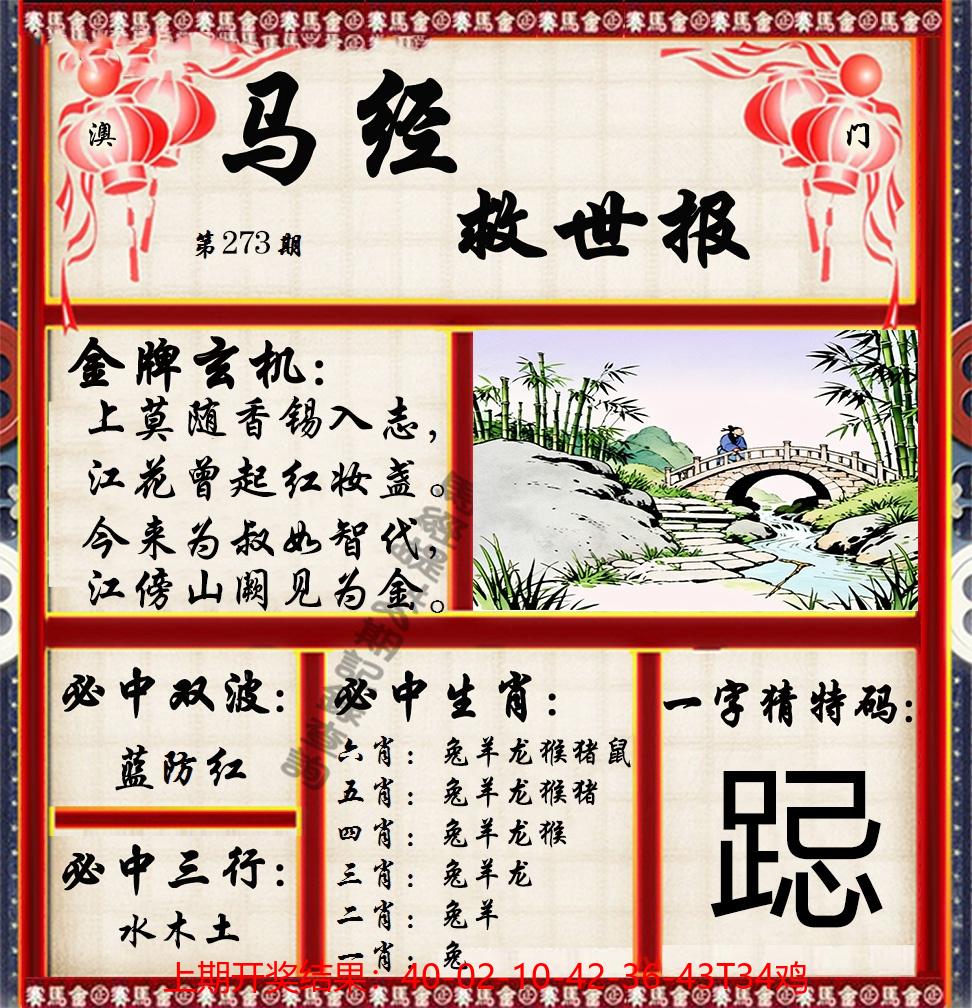 澳
门
马经
救世报
第273期
金牌玄机：
上莫随香锡入志，
江花曾起红妆盏。
今来为叔如智代，
江傍山阙见为金。
必中双波：
蓝防红
必中三行：
水木土
必中生肖：
六肖：兔羊龙猴猪鼠
五肖：兔羊龙猴猪
四肖：兔羊龙猴
三肖：兔羊龙
二肖：兔羊
一肖：兔
一字猜特码：
跽
上期开奖结果：40-02-10-42-36-43T34鸡